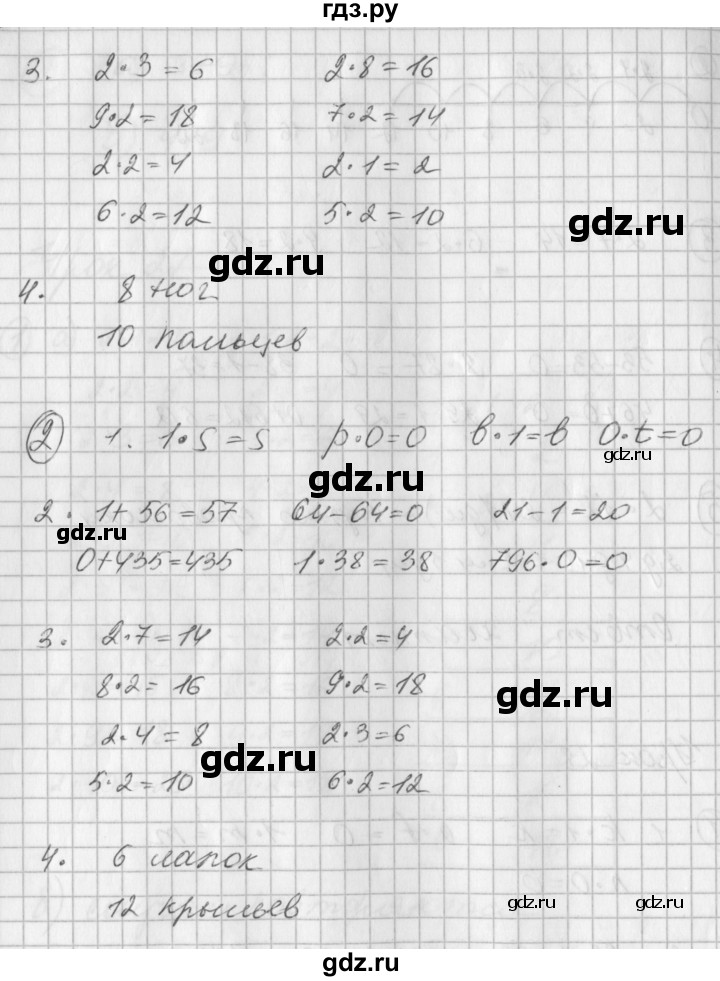 гдз.ру
3. 2·3=6 2·8=16
9·2=18 7·2=14
2·2=4 2·1=2
6·2=12 5·2=10
gdz.ru
gdz.ru
4. 8 ног
10 пальцев
2 1. 1·s=s p·0=0 b·1=b 0·t=0
gdz.ru
gdz.ru
2. 1+56=57 64-64=0 21-1=20
gdz.ru
0+435=435 1·38=38 796·0=0
3. 2·7=14 2·2=4
8·2=16 9·2=18
gdz.ru
2·4=8 2·3=6
gdz.ru
5·2=10 6·2=12
4. 6 лапок
12 крыльев
gdz.ru gdz.ru
gdz.ru